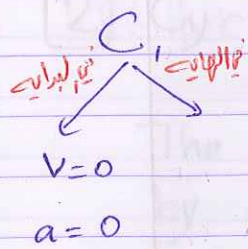 C₁
في البدايه في النهايه
V=0
a=0